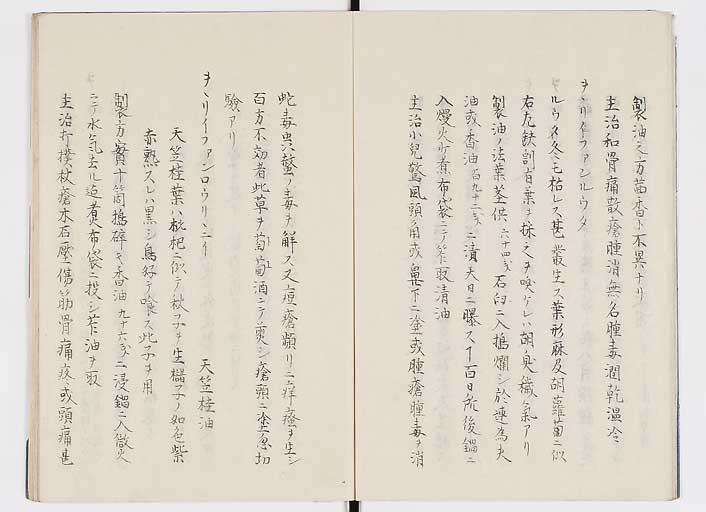 製油之方茴香ト不異ナリ
主治和骨痛散瘡腫消無名腫毒潤乾温冷
ヲヽリイフアンルウタ
ルウタ冬モ枯レス甚叢生ス葉形麻及胡蘿蔔ニ似
右左鈌割有葉ヲ採之ヲ嗅ケレハ胡臭穢氣アリ
製油ノ法葉莖供六十四匁石臼ニ入搗爛シ於速為夫
油或香油百九十二匁ニ漬天日ニ曝ス丁百日所後鍋ニ
入熳火ニ煮布袋ニテ笮取清油
主治小兒驚風頭ノ角或鼻下ニ塗一或腫瘡腫毒ヲ消
蛇毒虫螫ノ毒ヲ解ス又痘瘡頻リニ痒瘙ヲ生シ
百方不効者此草ヲ萄萄酒ニテ煎シ瘡頭ニ塗忽切
驗アリ
ヲヽリイフアンロウリンニイ
天笠桂油
天笠桂葉ハ枇杷ニ似テ杖子ヲ生櫧子ノ如色紫
赤熟スレハ黒シ鳥好テ喰ス此子ヲ用
製方實十箇搗碎キ香油九十六匁ニ浸鍋ニ入微火
ニテ水氣去ル迠煮布袋ニ投シ笮油ヲ取
主治打撲杖瘡木石壓傷筋骨痛疼或頭痛甚